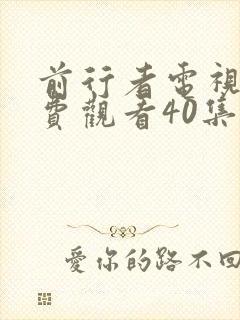 前行者電視
費觀看40集
愛你的路不回